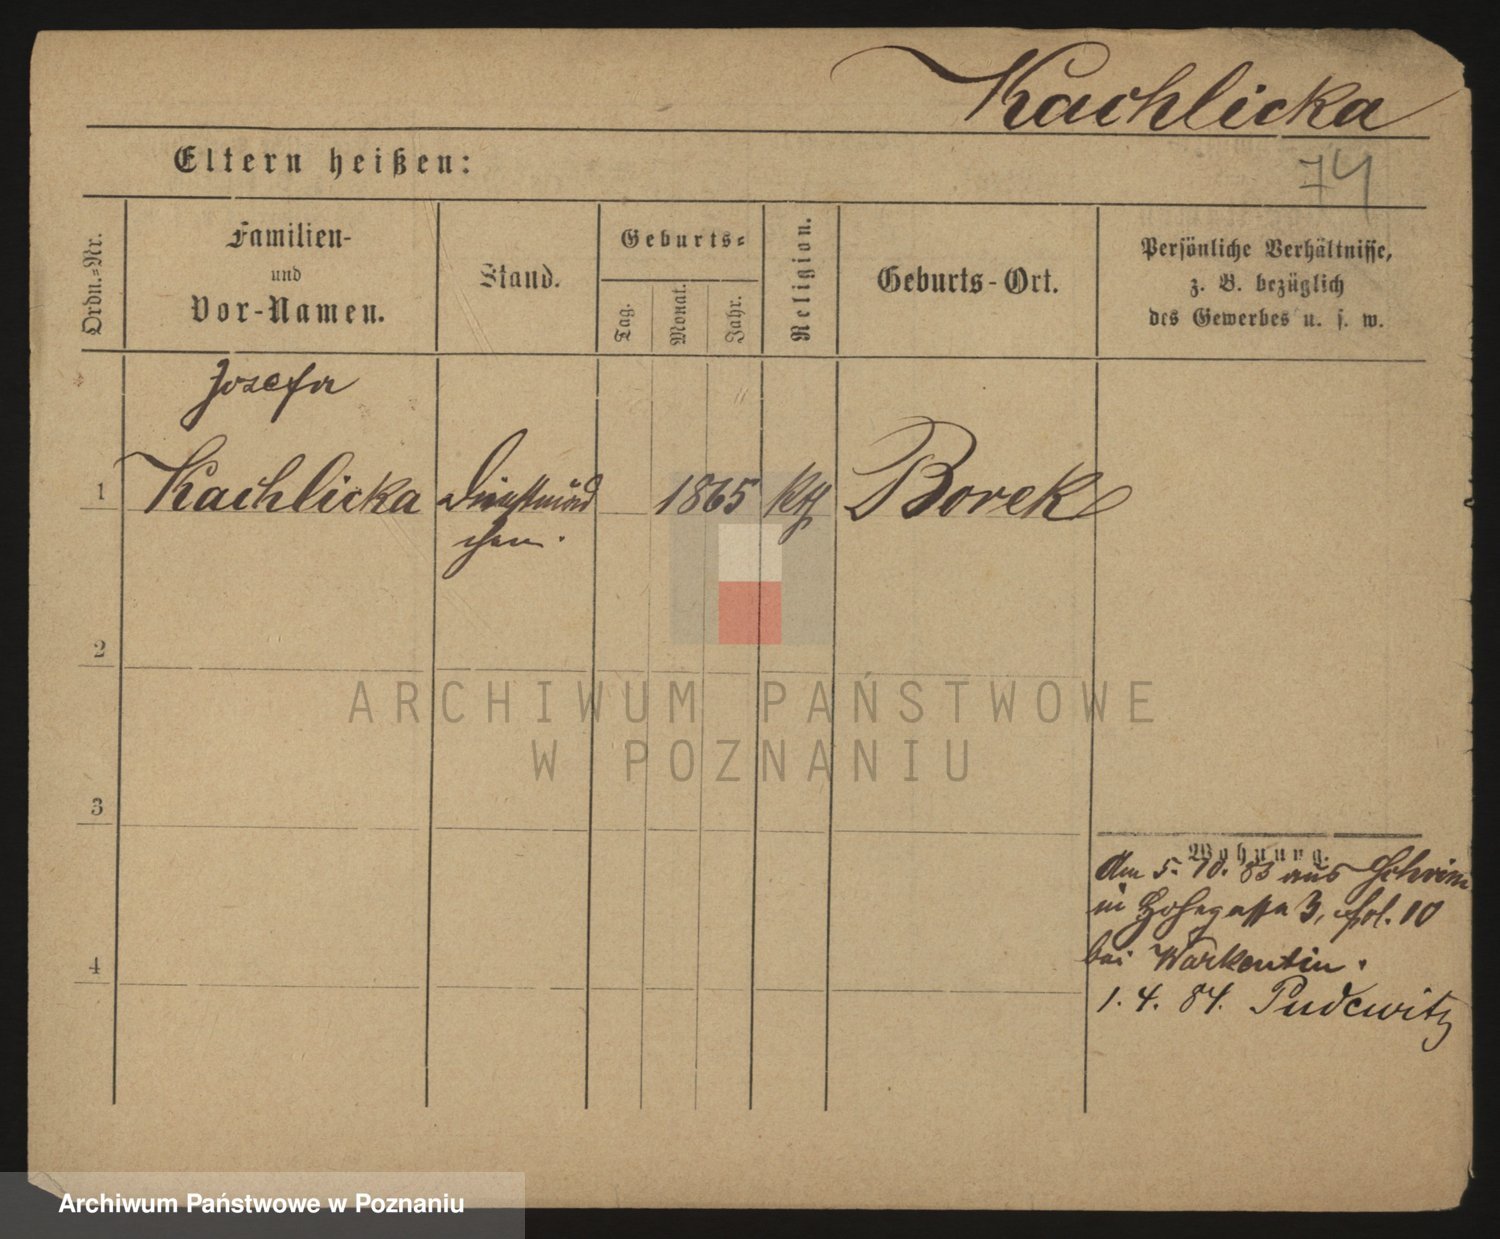 Kachlicka
Eltern heißen:
74
Ordn.-Nr.
Familien-
und
Vor-Namen.
Stand.
Geburts-
Tag.
Monat.
Jahr.
Religion.
Geburts-Ort.
Persönliche Verhältnisse,
z. B. bezüglich
des Gewerbes u. s. w.
Josefa
1 Kachlicka Dienstmäd 1865 kth Borek
chen.
2
ARCHIWUM PAŃSTWOWE
W POZNANIU
3
Wohnung.
Am 5. 10. 83 aus Schrim
in Hohegasse 3, Pol. 10
4
bei Warkentin.
1. 4. 84. Pudewitz
Archiwum Państwowe w Poznaniu